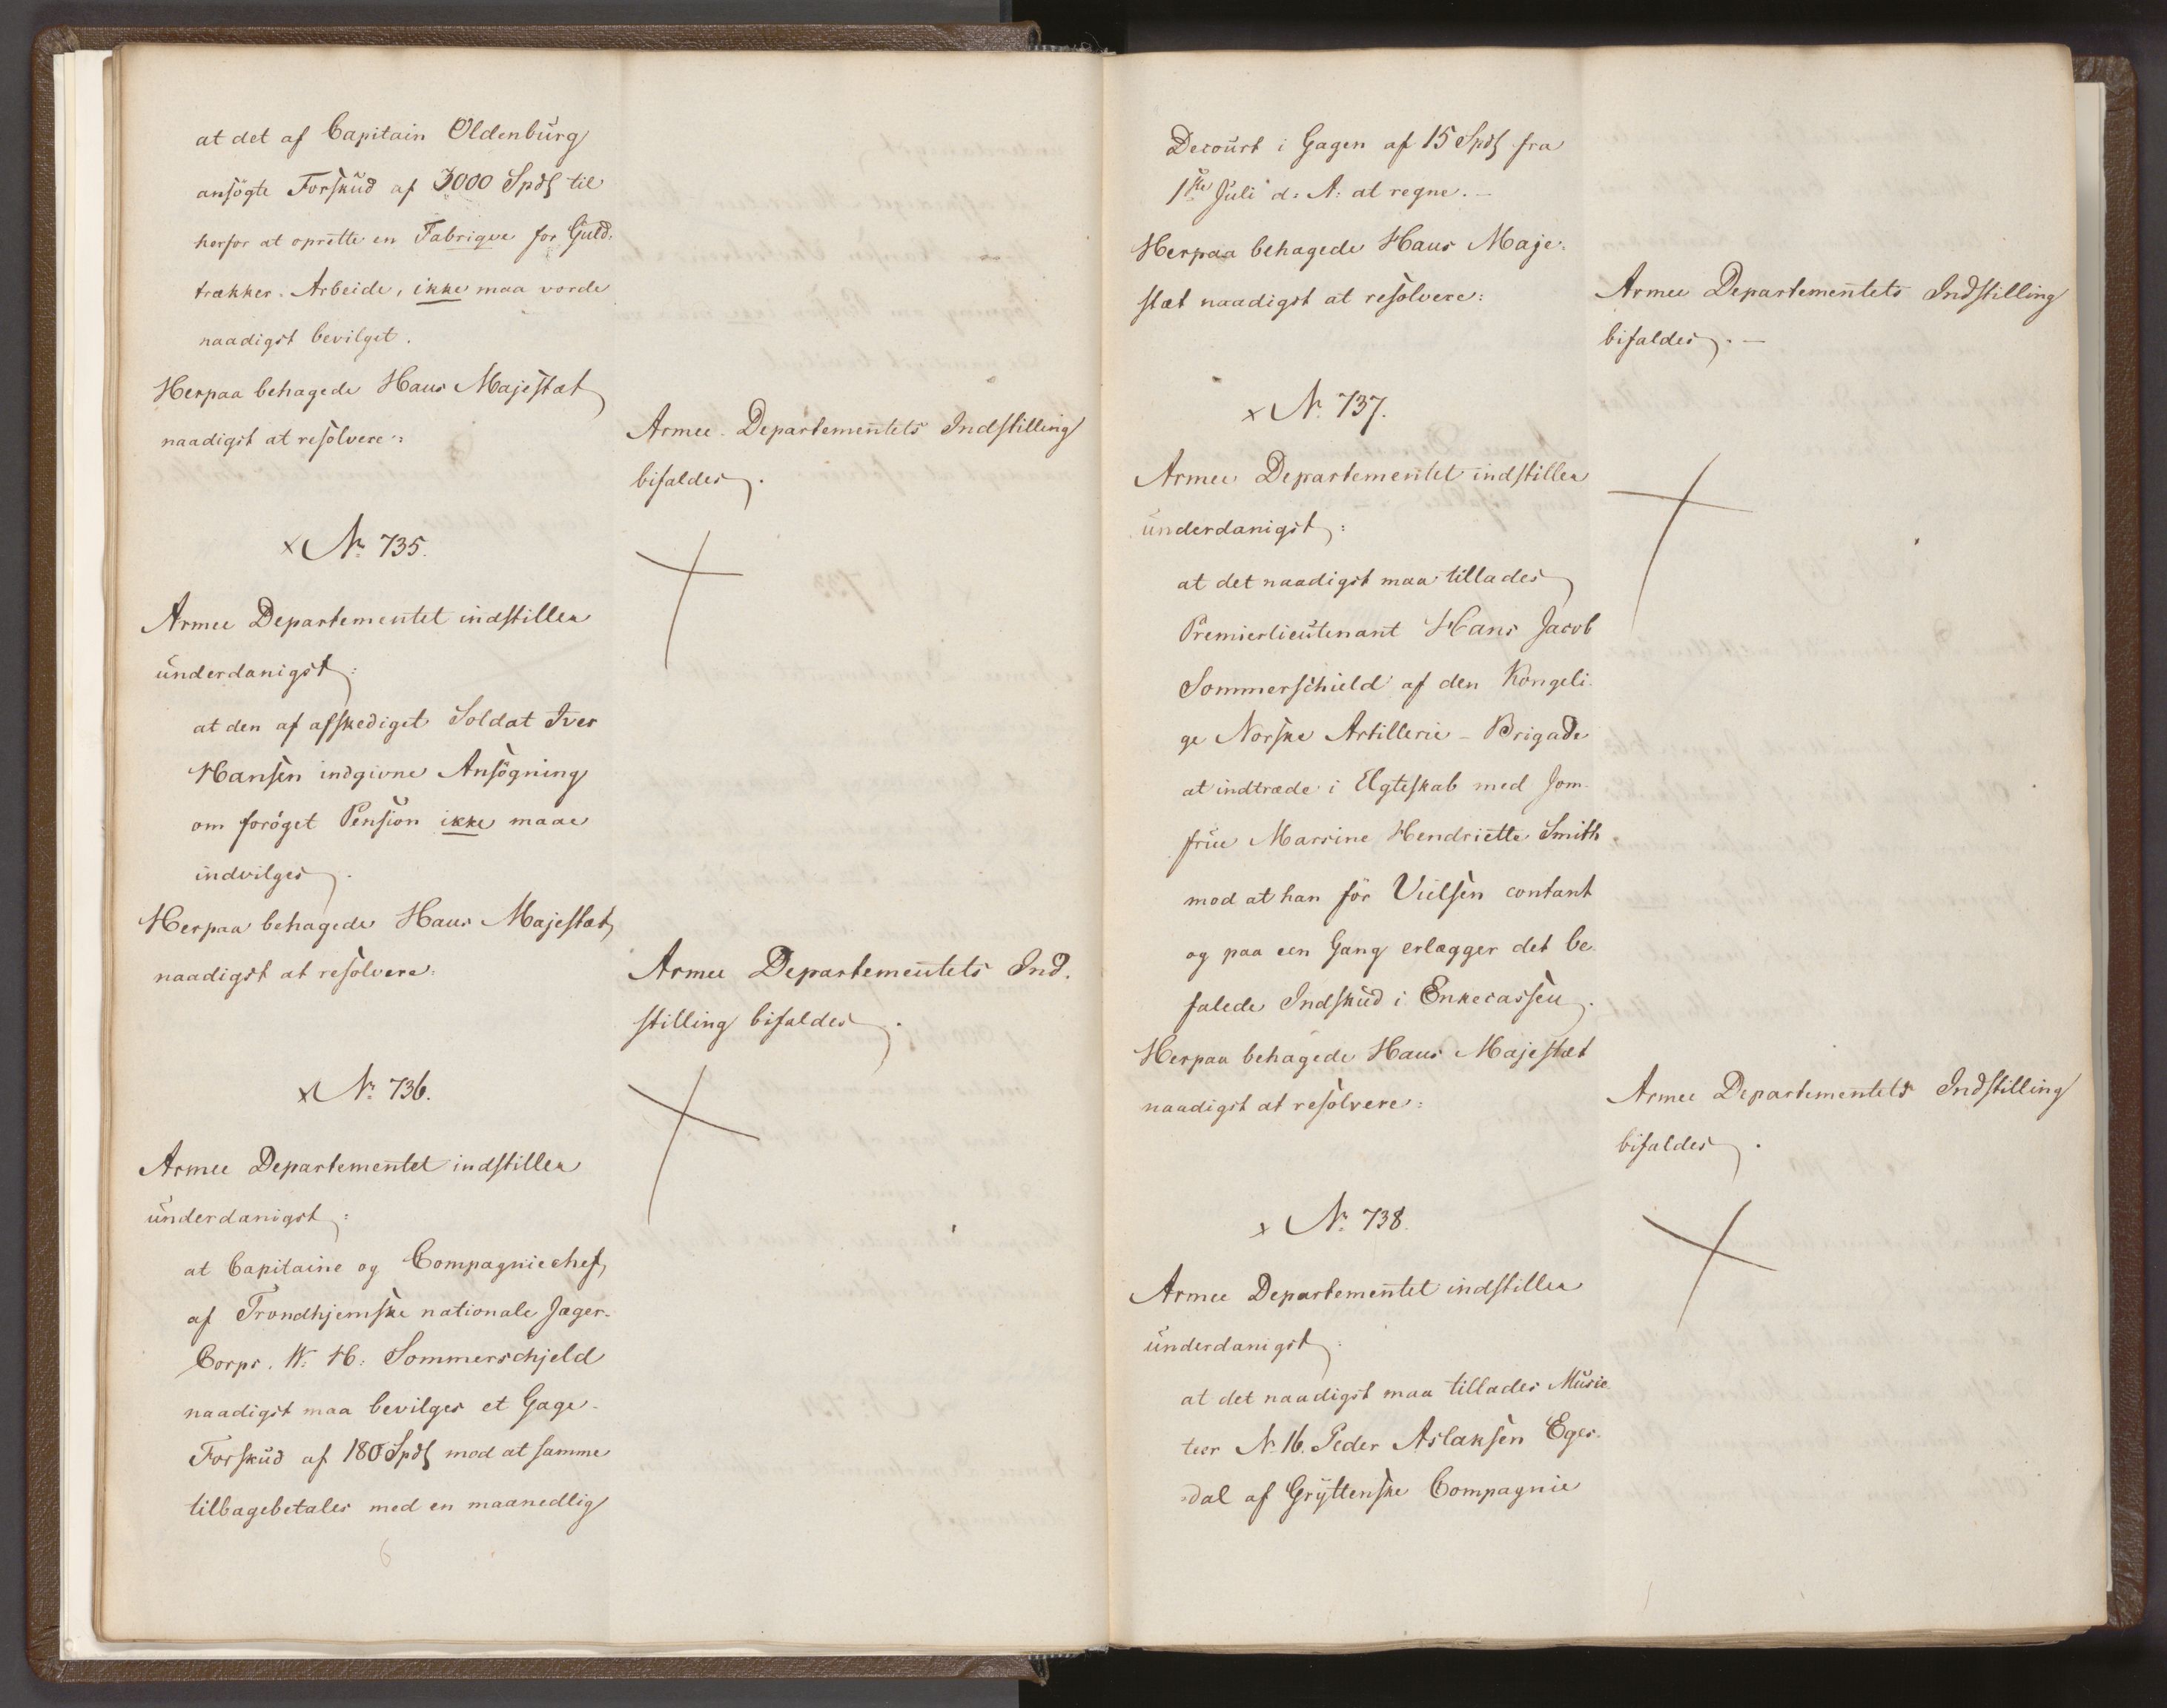 at det af Capitain Oldenburg
ansögte Forskud af 3000 Spds til
herfor at oprette en Fabrique for Guld-
trækker-Arbeide, ikke maa vorde
naadigst bevilget.
Herpaa behagede Hans Majestæt
naadigst at resolvere:
Armee-Departementets Indstilling
bifaldes.
x No 735.
Armee Departementet indstiller
underdanigst:
at den af afskediget Soldat Iver
Hansen indgivne Ansögning
om foröget Pension ikke maae
indvilges.
Herpaa behagede Hans Majestæt
naadigst at resolvere:
Armee Departementets Ind-
stilling bifaldes.
x No 736.
Armee Departementet indstiller
underdanigst:
at Capitaine og Compagniechef
af Trondhjemske nationale Jæger-
Corps. N: H: Sommerschjeld
naadigst maa bevilges et Gage-
Forskud af 180 Spds mod at samme
tilbagebetales med en maanedlig
6
Decourt i Gagen af 15 Spds fra
1ste Juli d: A: at regne.-
Herpaa behagede Hans Maje-
stæt naadigst at resolvere:
Armee Departementets Indstilling
bifaldes.-
x No 737.
Armee Departementet indstiller
underdanigst:
at det naadigst maa tillades
Premierlieutenant Hans Jacob
Sommerschield af den Kongeli-
ge Norske Artillerie-Brigade
at indtræde i Ægteskab med Jom-
frue Marsine Hendriette Smith
mod at han för Vielsen contant
og paa een Gang erlægger det be-
falede Indskud i Enkecassen.
Herpaa behagede Hans Majestæt
naadigst at resolvere:
Armee Departementets Indstilling
bifaldes.
x No 738.
Armee Departementet indstiller
underdanigst:
at det naadigst maa tillades Musqve-
teer No 16. Peder Aslaksen Eges-
dal af Gryttenske Compagnie